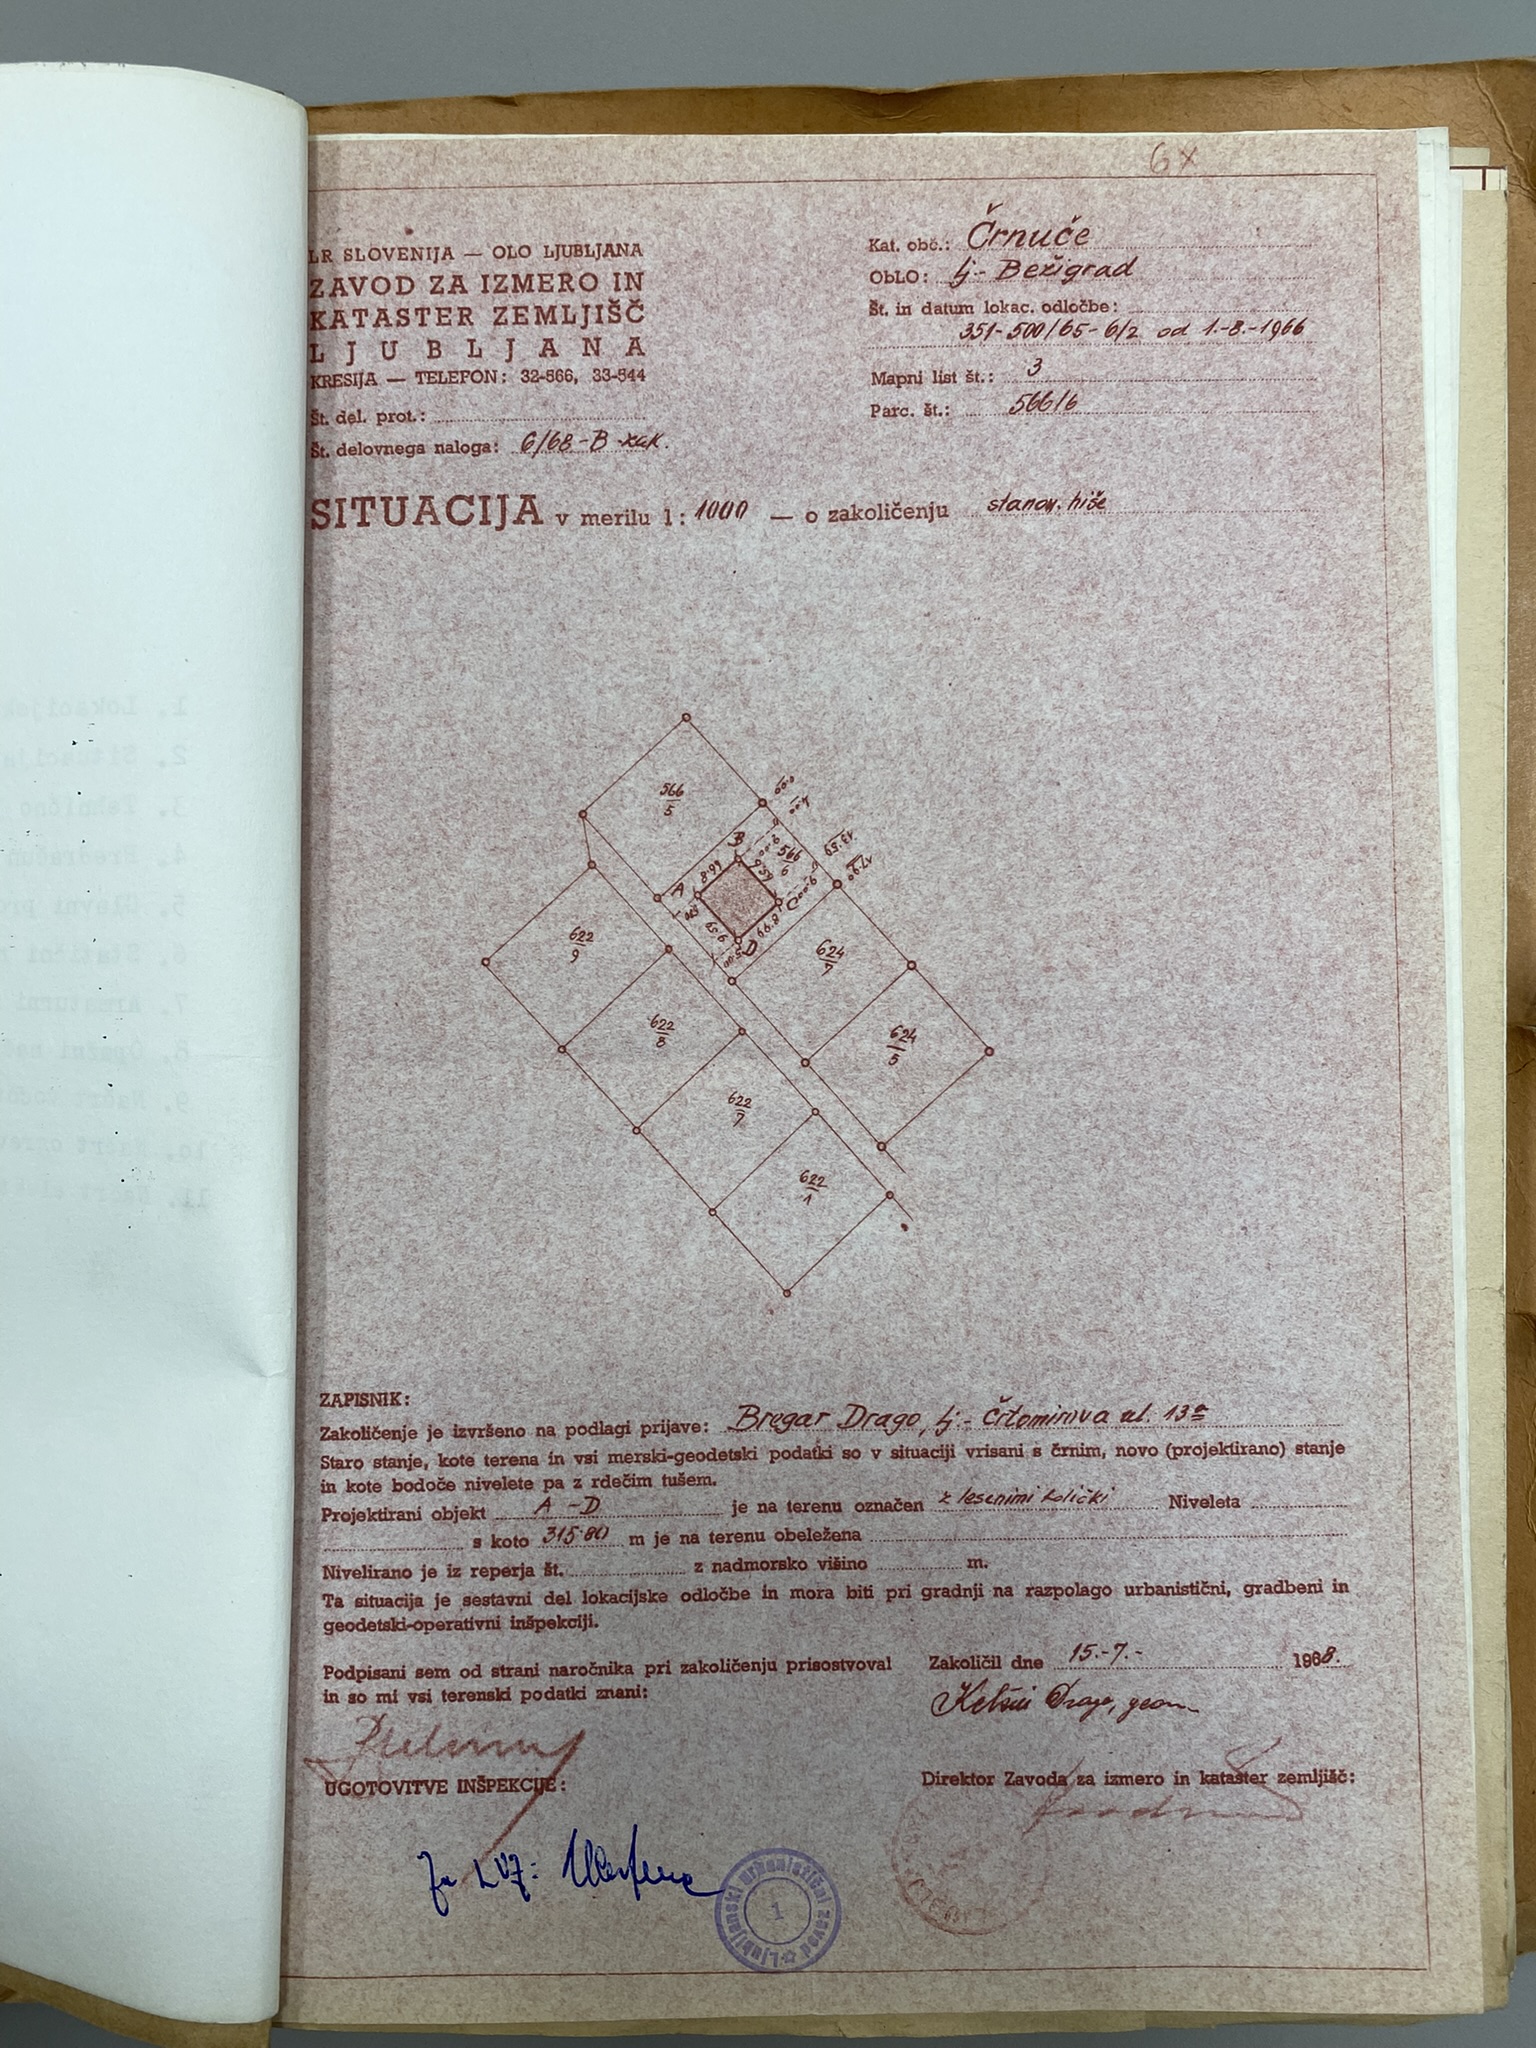 6x
LR SLOVENIJA — OLO LJUBLJANA
ZAVOD ZA IZMERO IN
KATASTER ZEMLJIŠČ
LJUBLJANA
KRESIJA — TELEFON: 32-566, 33-544
Št. del. prot.:
Št. delovnega naloga: 6/68-B-zak.
Kat. obč.: Črnuče
ObLO: Lj.- Bežigrad
Št. in datum lokac. odločbe:
351-500/65-6/2 od 1.-8.-1966
Mapni list št.: 3
Parc. št.: 566/6
SITUACIJA v merilu 1: 1000 — o zakoličenju stanov. hiše
566/5
0.00
4.00
B
9.00
566/6
13.59
17.90
8.99
9.59
A
C
9.00
5.00
9.59
8.99
D
5.00
622/9
624/7
622/8
624/5
622/7
622/1
ZAPISNIK:
Zakoličenje je izvršeno na podlagi prijave: Bregar Drago, Lj.- Črtomirova ul. 13a
Staro stanje, kote terena in vsi merski-geodetski podatki so v situaciji vrisani s črnim, novo (projektirano) stanje
in kote bodoče nivelete pa z rdečim tušem.
Projektirani objekt A - D je na terenu označen z lesenimi količki Niveleta
s koto 315.80 m je na terenu obeležena
Nivelirano je iz reperja št. z nadmorsko višino m.
Ta situacija je sestavni del lokacijske odločbe in mora biti pri gradnji na razpolago urbanistični, gradbeni in
geodetski-operativni inšpekciji.
Podpisani sem od strani naročnika pri zakoličenju prisostvoval
in so mi vsi terenski podatki znani:
Zakoličil dne 15.-7.- 1968.
Drago, geom.
UGOTOVITVE INŠPEKCIJE:
Direktor Zavoda za izmero in kataster zemljišč:
Za LUZ:
Ljubljanski urbanistični zavod
1